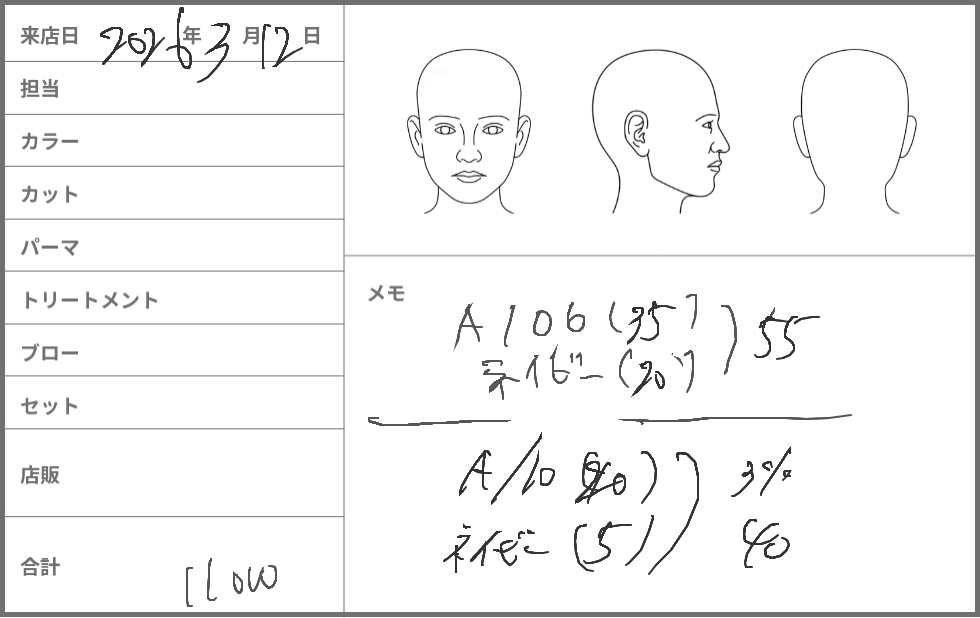 来店日 2026年3月12日
担当
カラー
カット
パーマ
トリートメント
ブロー
セット
店販
合計 11000
メモ
A/06(35) 55
ネイビー(20)
A/10 ( ) 3%
ネイビー (5) 40